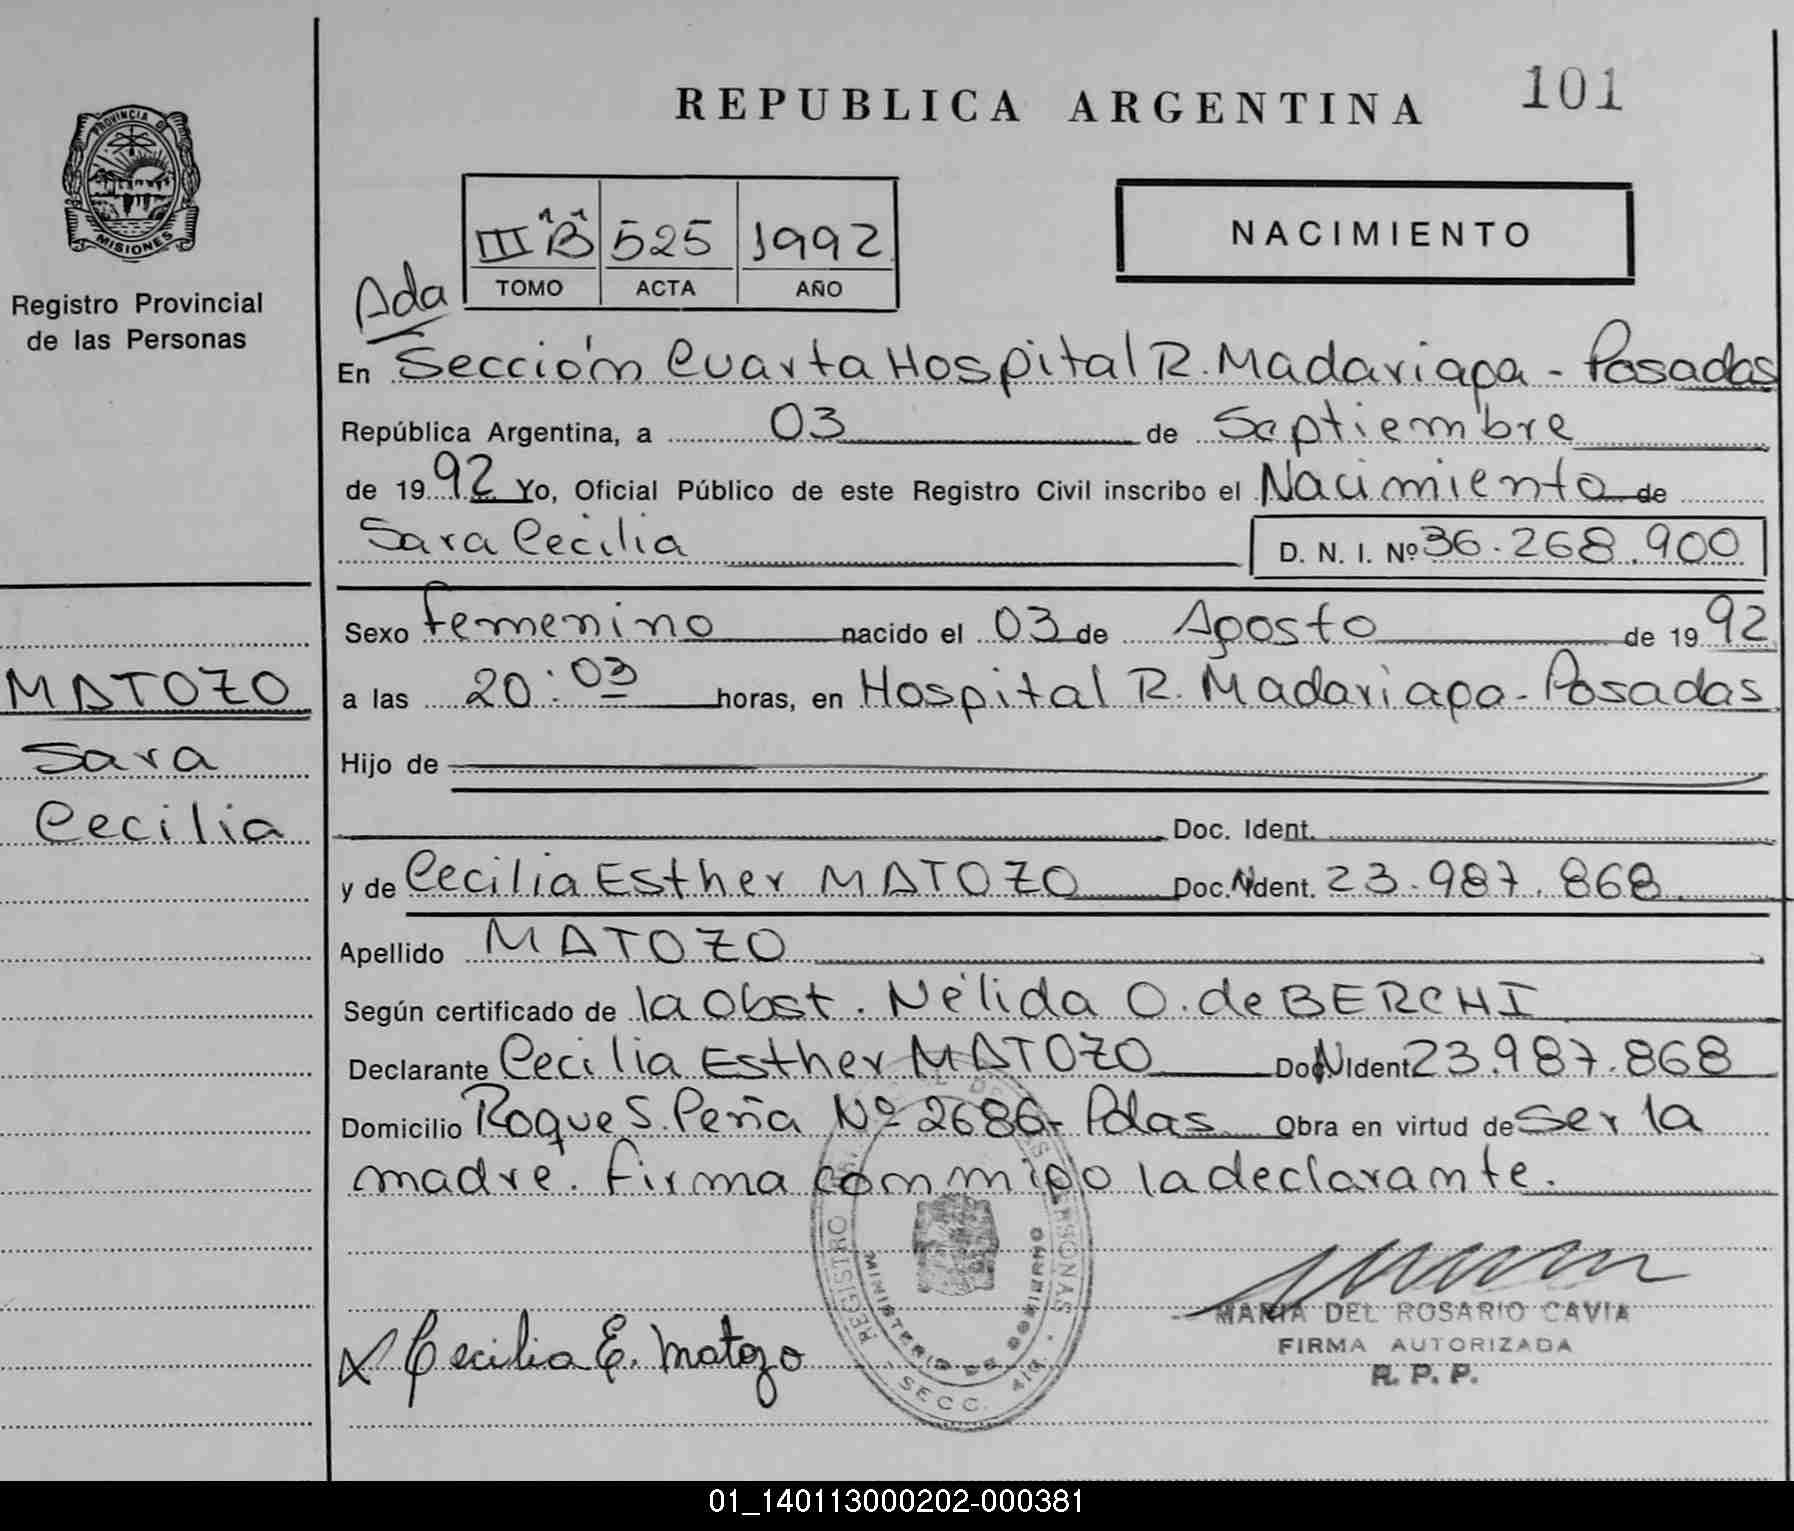 REPUBLICA ARGENTINA
101
PROVINCIA DE
MISIONES
Registro Provincial
de las Personas
III "B" 525 1992
TOMO ACTA AÑO
NACIMIENTO
Ada
En Sección Cuarta Hospital R. Madariaga - Posadas
República Argentina, a 03 de Septiembre
de 1992 Yo, Oficial Público de este Registro Civil inscribo el Nacimiento de
Sara Cecilia D. N. I. Nº 36.268.900
Sexo femenino nacido el 03 de Agosto de 1992
a las 20:03 horas, en Hospital R. Madariaga - Posadas
Hijo de
Doc. Ident.
y de Cecilia Esther MATOZO Doc. N Ident. 23.987.868
Apellido MATOZO
Según certificado de la Obst. Nélida O. de BERCHI
Declarante Cecilia Esther MATOZO Doc. N Ident 23.987.868
Domicilio Roque S. Peña Nº 2686- Pdas Obra en virtud de ser la
madre. Firma conmigo la declarante.
MATOZO
Sara
Cecilia
REGISTRO DE LAS PERSONAS
MINISTERIO DE GOBIERNO
SECC. 4ta.
Cecilia E. Matozo
MARIA DEL ROSARIO CAVIA
FIRMA AUTORIZADA
R. P. P.
01_140113000202-000381